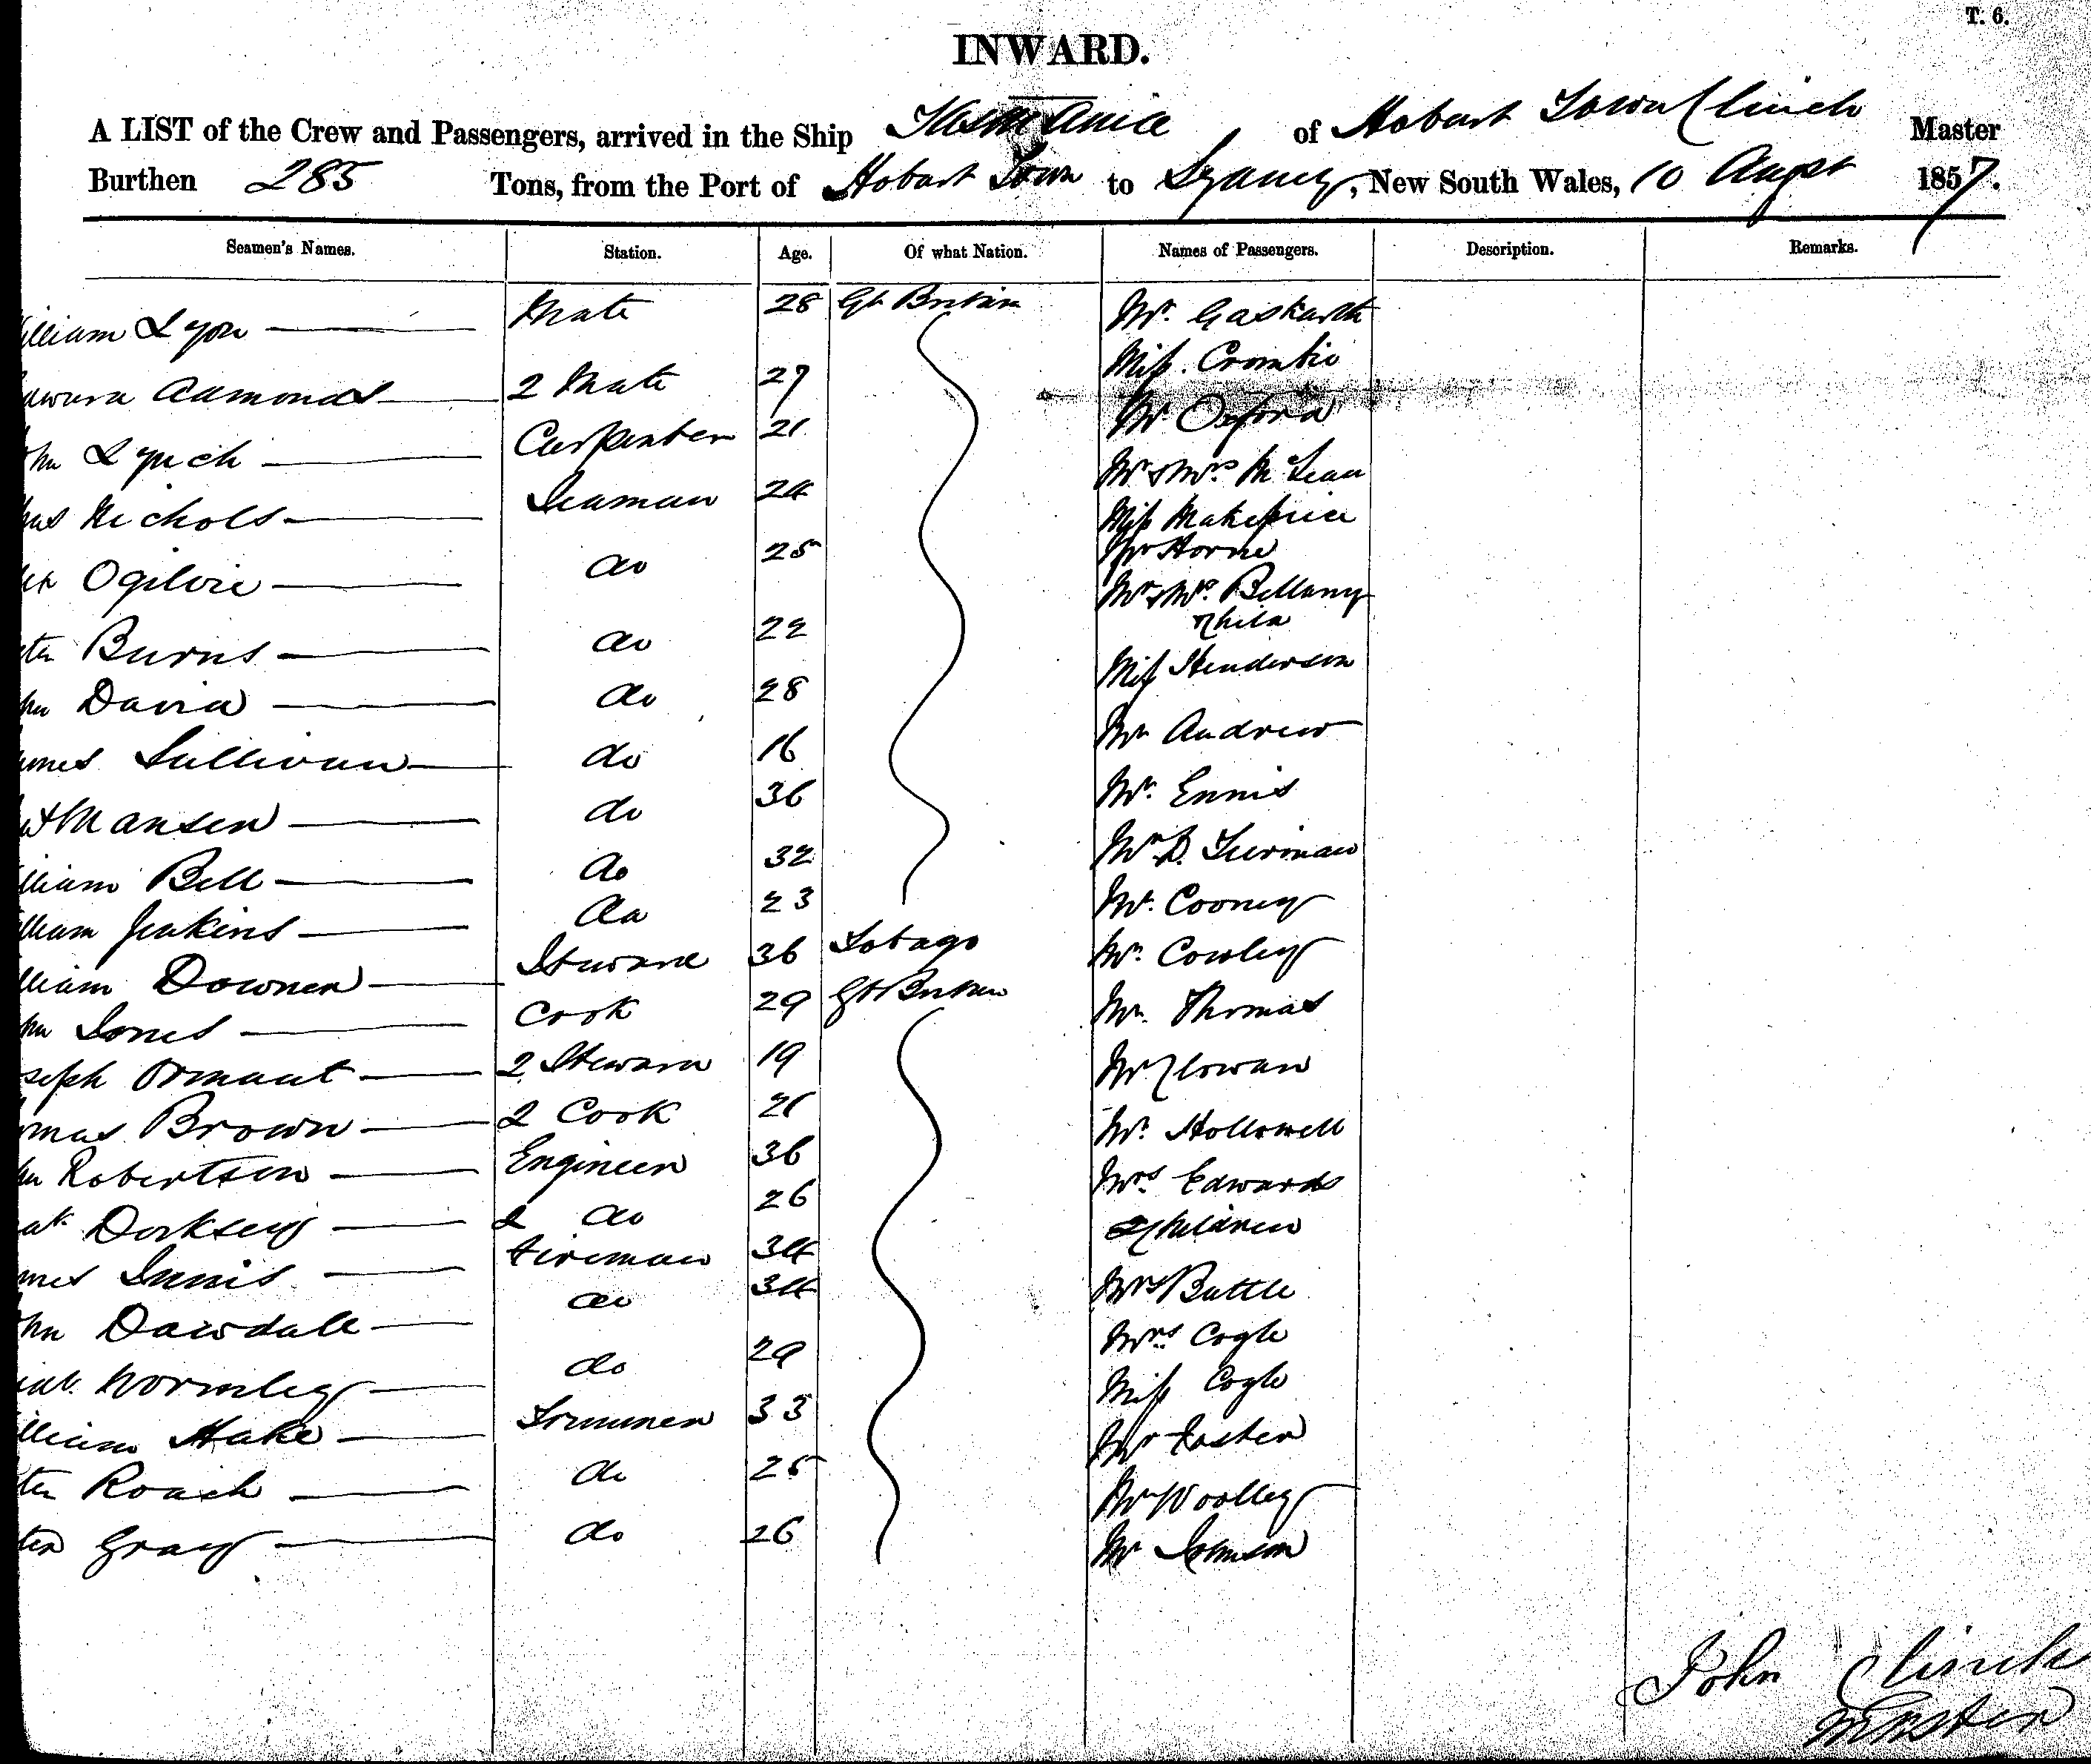 T. 6.
INWARD.
A LIST of the Crew and Passengers, arrived in the Ship Tasmania of Hobart Town Clinch Master
Burthen 285 Tons, from the Port of Hobart Town to Sydney, New South Wales, 10 Augst 1857.
Seamen's Names. Station. Age. Of what Nation. Names of Passengers. Description. Remarks.
illiam Lyon Mate 28 Gt Britain Mr. Gaskarth
Miss. Crombie
dward Admonds 2 Mate 27
Mr Oxford
ohn Lynch Carpenter 21
Mr & Mrs. McLean
Nichols Seaman 24
Miss Makepiece
Mr Horne
lex Ogilvie do 25
Mr & Mrs. Bellamy
Child
eter Burns do 22
Miss Henderson
ohn David do 28
Mr Andrew
ames Sullivan do 16
Mr. Ennis
Mansen do 36
Mr D.
illiam Bell do 32
Mr. Cooney
illiam Jenkins do 23
Mr. Cowley
illiam Downer Steward 36 Tobago
Mr. Thomas
ohn Jones Cook 29 Gt Britain
oseph Ormant 2 Steward 19
Mr Clowan
omas Brown 2 Cook 21
Mr. Hollowell
ohn Robertson Engineer 36
Mrs. Edwards
Dorksey 2 do 26
2 Children
ames Innis Fireman 34
Mrs Battle
ohn Dawdale do 34
Mrs. Cogle
Wormley do 29
Miss Cogle
illiam Hake Trimmer 33
Mr Foster
eter Roach do 25
Mr Woolley
eter Gray do 26
Mr Johnson
John Clinch
Master